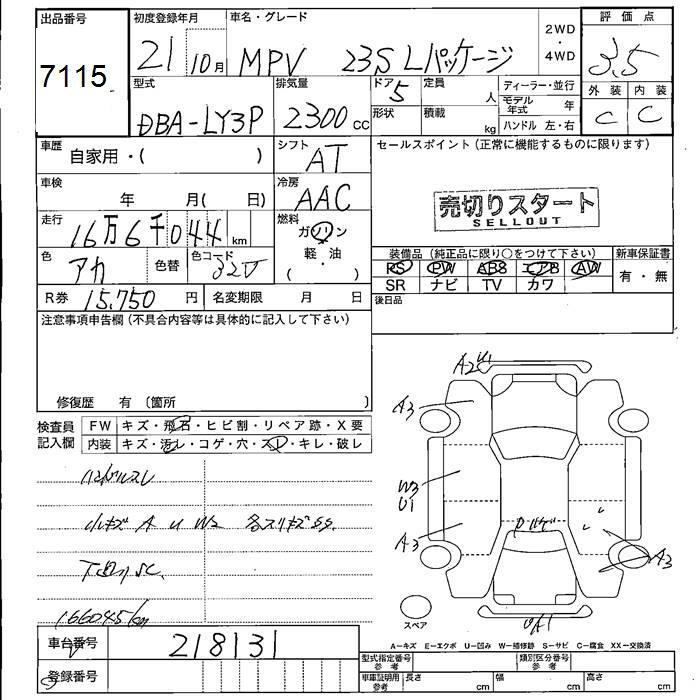 出品番号
7115
初度登録年月
21 10月
車名・グレード
MPV 23S Lパッケージ
2WD
・
4WD
評価点
3.5
型式
DBA-LY3P
排気量
2300cc
ドア 5
形状
定員
人
積載
kg
ディーラー・並行
モデル年式 年
ハンドル 左・右
外装 内装
C C
車歴 自家用・( )
シフト
AT
セールスポイント(正常に機能するものに限ります)
車検
年 月( 日)
冷房
AAC
売切りスタート
SELLOUT
走行
16万6千044km
燃料
ガソリン
軽・油
( ・ )
色
アカ
色替
色コード
32V
装備品(純正品に限り○をつけて下さい)
新車保証書
PS PW ABS エアB AW
SR ナビ TV カワ
有・無
R券 15,750 円
名変期限 月 日
後日品
注意事項申告欄(不具合内容等は具体的に記入して下さい)
修復歴 有(箇所 )
検査員記入欄
FW キズ・飛石・ヒビ割・リペア跡・X要
内装 キズ・汚レ・コゲ・穴・スレ・キレ・破レ
ハンドルスレ
小キズ A U W2
下回り
166045km
A3
W3
U1
A3
A3
スペア
A-キズ E-エクボ U-凹み W-補修跡 S-サビ C-腐食 XX-交換済
車台番号 218131
登録番号
型式指定番号参考
類別区分番号参考
車庫証明用参考 長さ cm 幅 cm 高さ cm